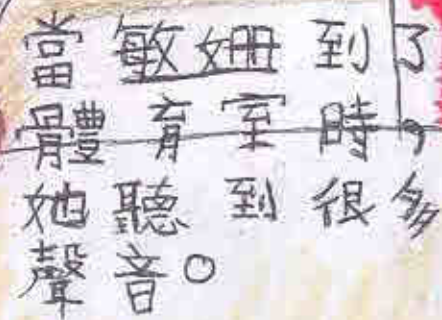 當敏姍到了
體育室時，
她聽到很多
聲音。